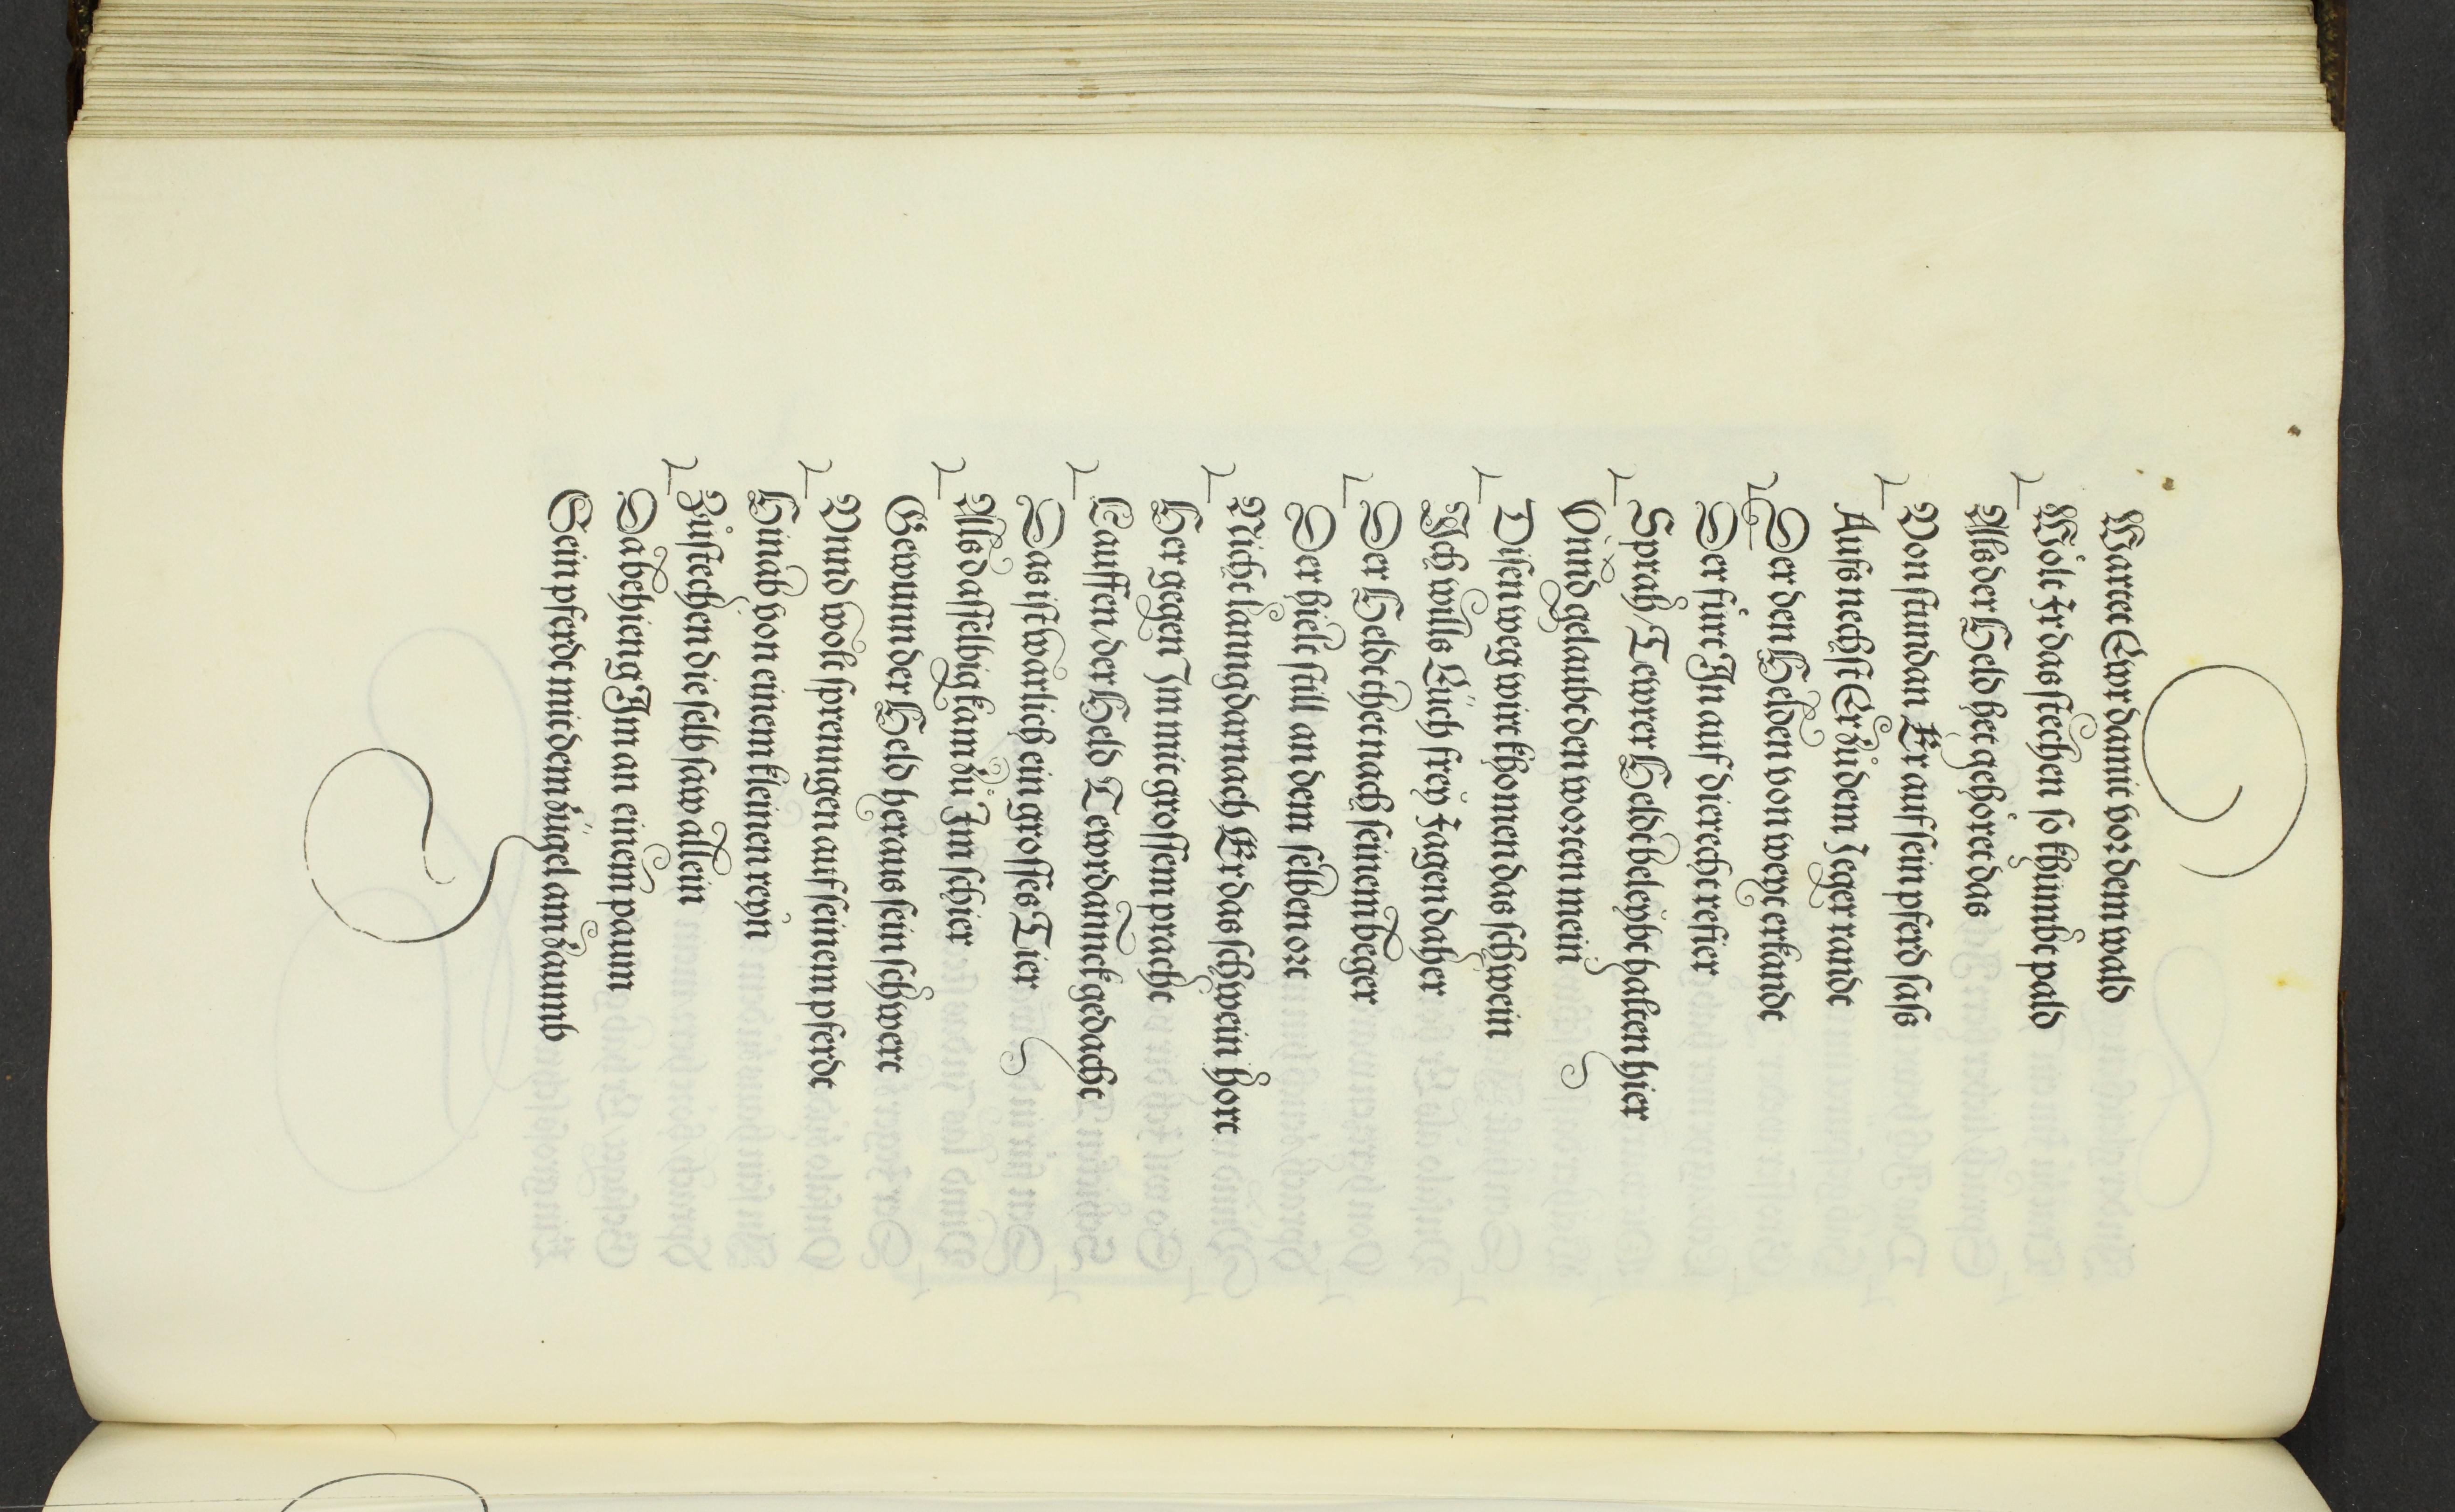 Wartet Ewr damit vor dem wald
Wölt Ir das stechen so khumbt pald
Als der Held het gehöret das
Von stundan Er auf sein pferd saſs
Aufs nechst Er zu dem Jeger randt
Der den Helden von weyt erkandt
Der fürt In auf die recht refier
Sprach / Tewrer Held beleybt halten hier
Vnnd gelaubt den worten mein
Disen weg wirt khomen das schwein
Ich wills Eüch frey Jagen daher
Der Held thet nach seinem beger
Der hielt still an dem selben ort
Nicht lanng darnach Er das schwein hort
Her gegen Im mit grossem pracht
Lauffen / der Held Tewrdannck gedacht
Das ist warlich ein grosses Tier
Alls dasselbig kam zu Im schier
Gewunn der Held heraus sein schwert
Vnnd wolt sprenngen auf seinem pferdt
Hinab von einem kleinen reyn
Zustechen die selb saw allein
Da behieng Im an einem paum
Sein pferdt mit dem zügel am zaumb